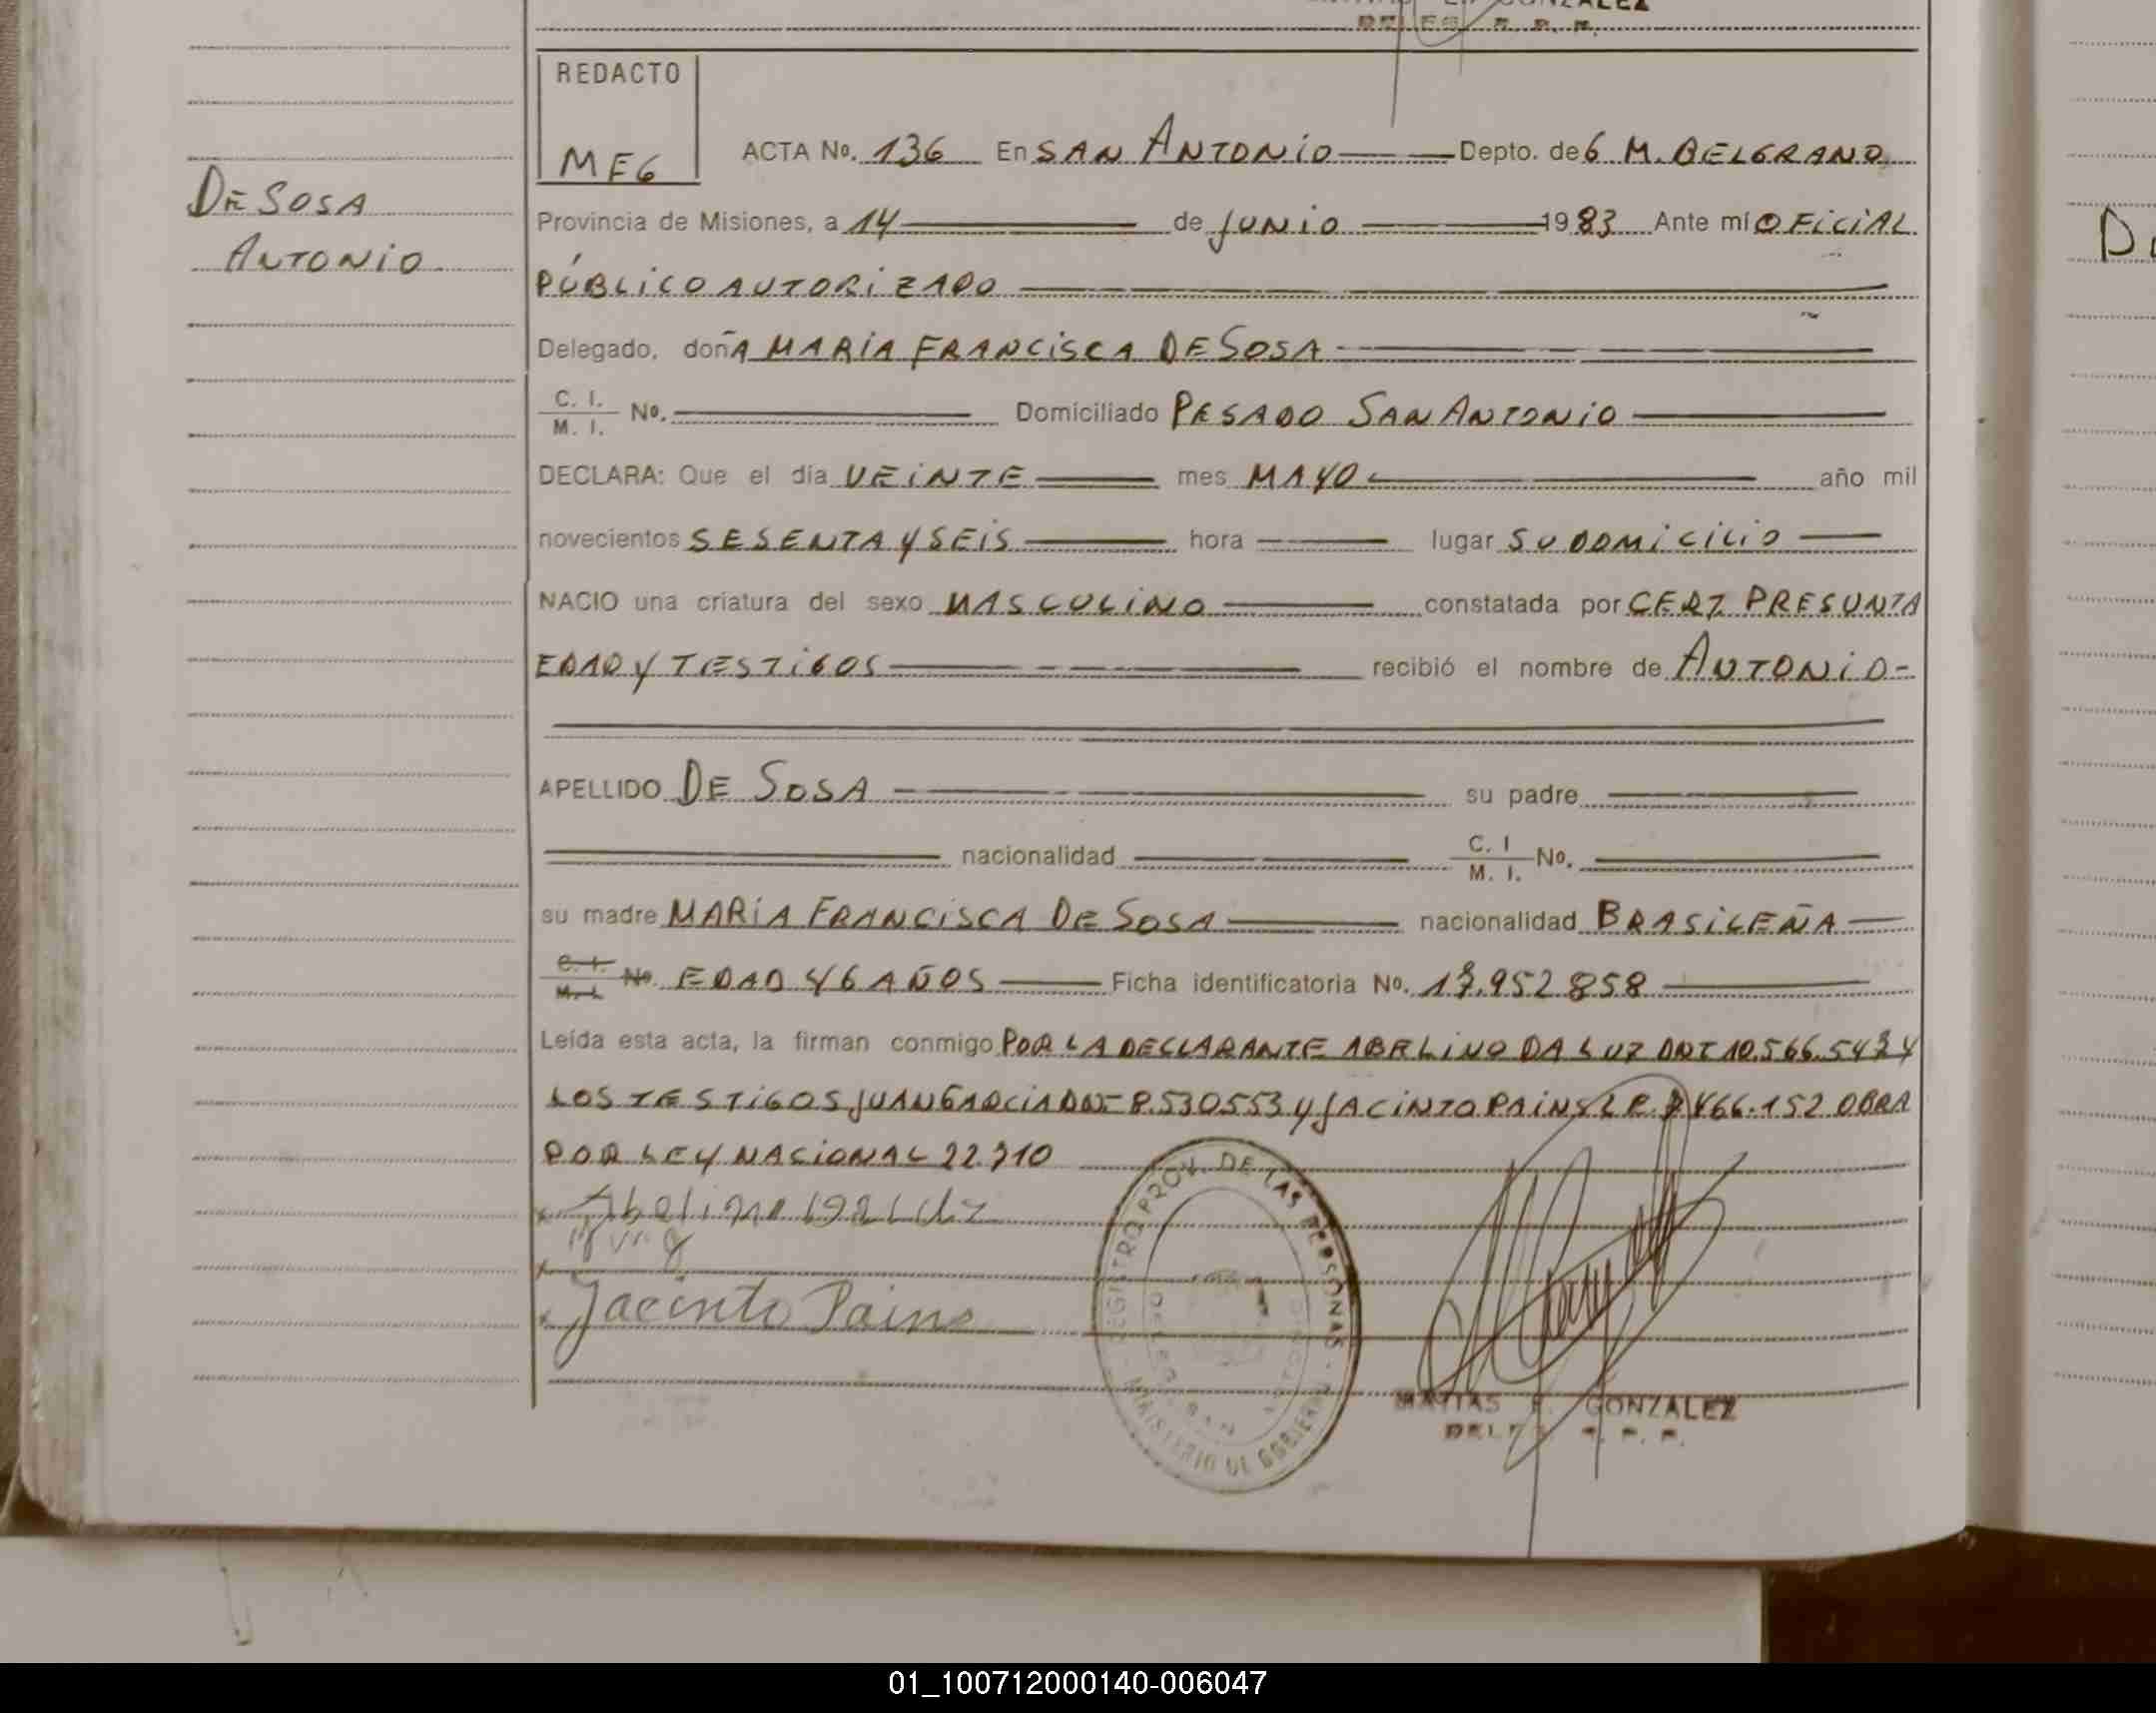 GONZALEZ
REDACTO
MEG
ACTA No. 136 En SAN ANTONIO Depto. de G M. BELGRANO
DE SOSA
ANTONIO
Provincia de Misiones, a 14 de JUNIO 1983 Ante mí OFICIAL
PÚBLICO AUTORIZADO
Delegado, doñA MARIA FRANCISCA DE SOSA
C. I. / M. I. No. Domiciliado PESADO SAN ANTONIO
DECLARA: Que el día VEINTE mes MAYO año mil
novecientos SESENTA Y SEIS hora lugar SU DOMICILIO
NACIO una criatura del sexo MASCULINO constatada por CERT PRESUNTA
EDAD Y TESTIGOS recibió el nombre de ANTONIO-
APELLIDO DE SOSA su padre
nacionalidad C. I / M. I. No.
su madre MARIA FRANCISCA DE SOSA nacionalidad BRASILEÑA
C. I. / M. I. No. EDAD 46 AÑOS Ficha identificatoria No. 952 858
Leída esta acta, la firman conmigo POR LA DECLARANTE ABELINO DA LUZ DNI 10.566. Y
LOS TESTIGOS JUAN GARCIA 8.530553 Y JACINTO PAINS 466.152 OBRA
POR LEY NACIONAL
Jacinto Pains
REGISTRO PROV. DE LAS PERSONAS
MINISTERIO DE GOBIERNO
SAN ANTONIO
MATIAS F. GONZALEZ
01_100712000140-006047